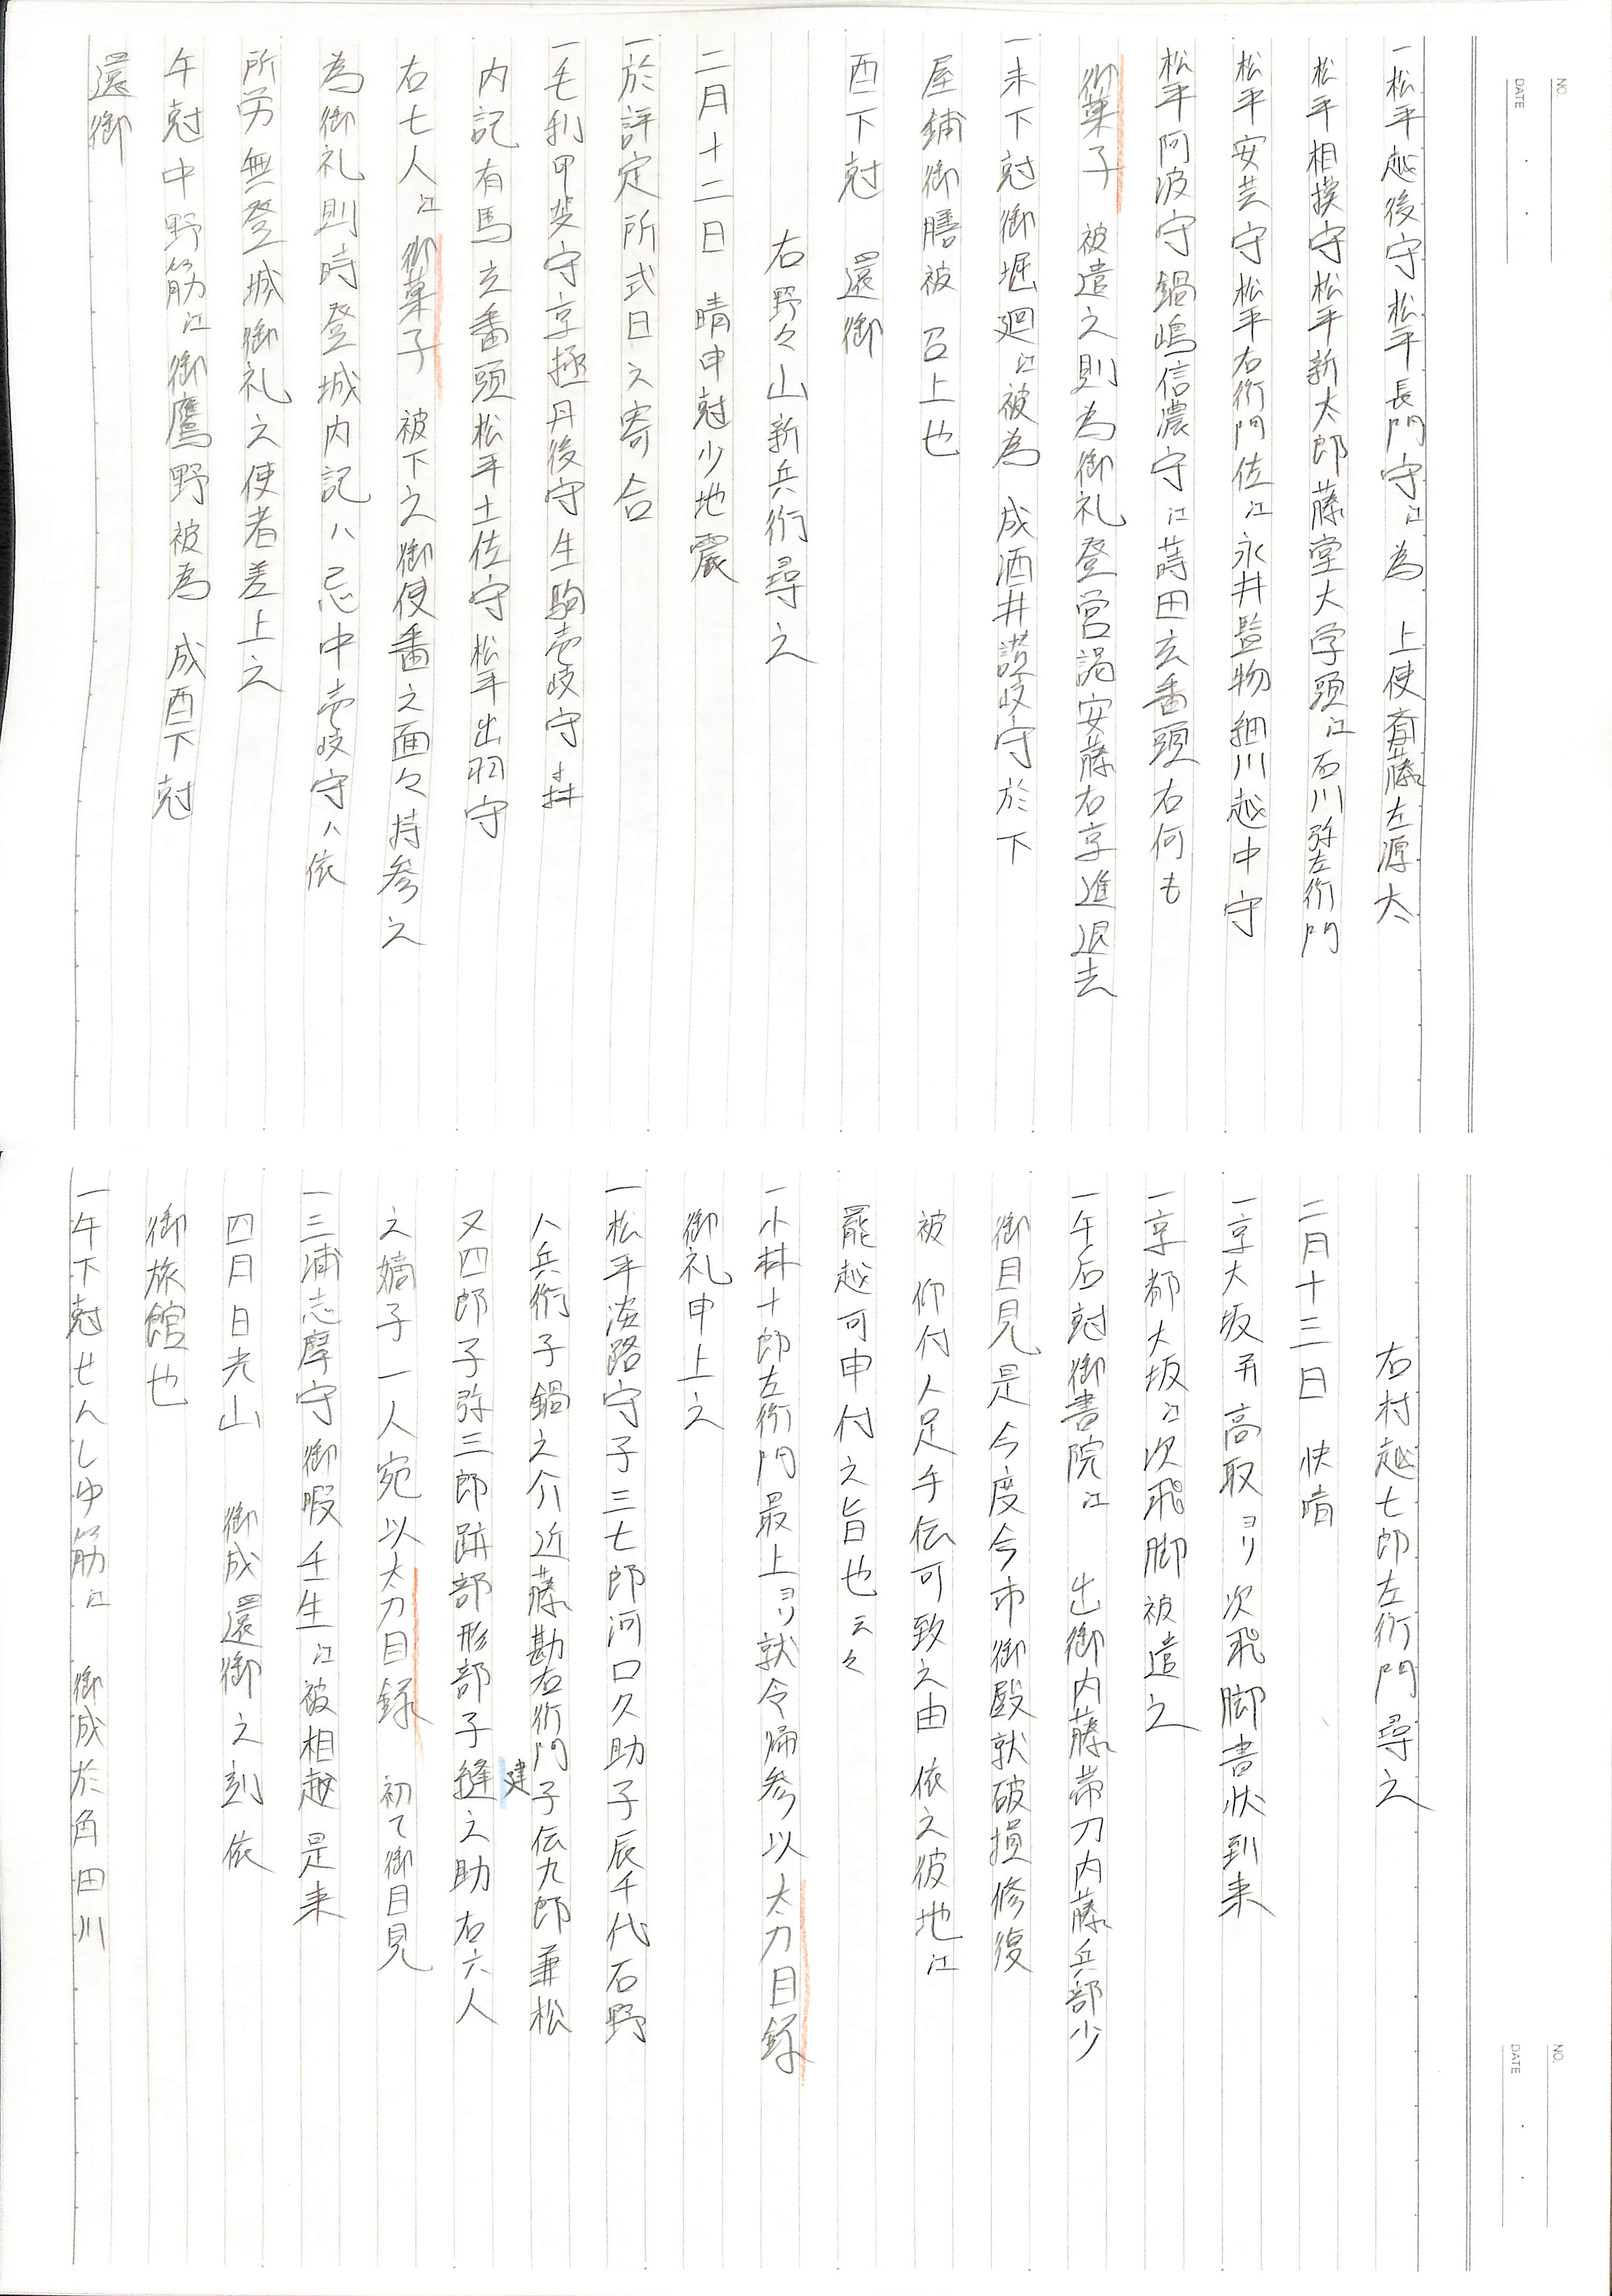 NO.
DATE
一松平越後守松平長門守江為　上使斎藤左源太
松平相撲守松平新太郎藤堂大学頭江石川弥左衛門
松平安芸守松平右衛門佐江永井監物細川越中守
松平阿波守鍋嶋信濃守江蒔田玄番頭右何も
御菓子　被遣之則為御礼登営謁安藤右京進退去
一未下尅御堀廻江被為　成酒井讃岐守於下
屋鋪御膳被　召上也
酉下尅　還御
右野々山新兵衛尋之
二月十二日　晴申尅少地震
一於評定所式日之寄合
一毛利甲斐守京極丹後守生駒壱岐守井
内記有馬玄番頭松平土佐守松平出羽守
右七人江御菓子　被下之御使番之面々持参之
為御礼則時登城内記ハ忌中壱岐守ハ依
所労無登城御礼之使者差上之
午尅中野筋江御鷹野被為　成酉下尅
還御
NO.
DATE
右村越七郎左衛門尋之
二月十三日　快晴
一京大坂并高取ヨリ次飛脚書状到来
一京都大坂江次飛脚被遣之
一午后尅御書院江　出御内藤帯刀内藤兵部少
御目見是今度今市御殿就破損修復
被　仰付人足手伝可致之由　依之彼地江
罷越可申付之旨也云々
一小林十郎左衛門最上ヨリ就令帰参以太刀目録
御礼申上之
一松平淡路守子三七郎河口久助子辰千代石野
八兵衛子鍋之介近藤勘右衛門子伝九郎兼松
又四郎子弥三郎跡部形部子縫之助右六人
建
之嫡子一人宛以太刀目録　初て御目見
一三浦志摩守御暇壬生江被相越是来
四月日光山　御成還御之刻依
御旅館也
一午下尅せんしゆ筋江　御成於角田川